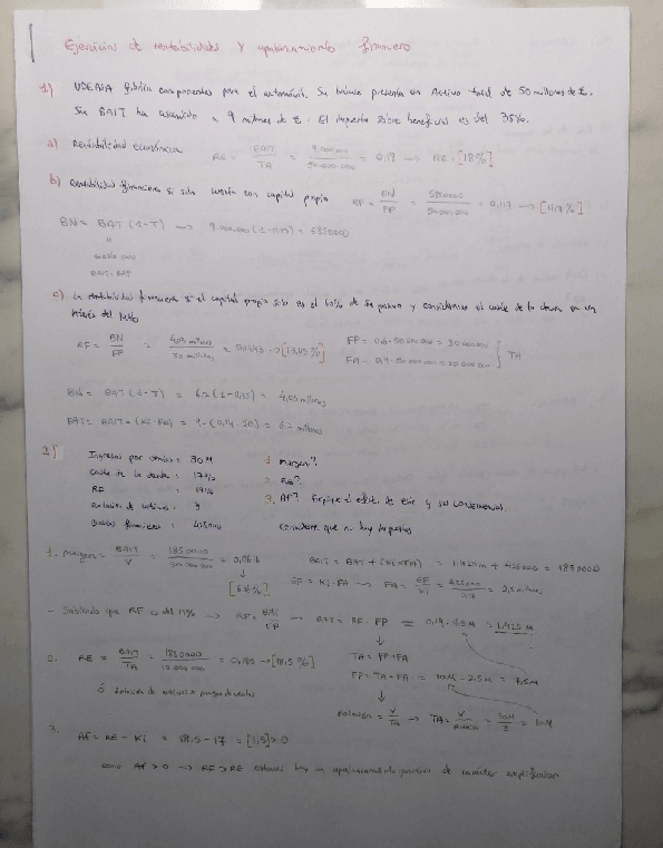 Ejercicios de rentabilidad y apalancamiento financiero
1) UDEASA fabrica componentes para el automóvil. Su balance presenta un Activo total de 50 millones de €.
Su BAIT ha ascendido a 9 millones de €. El impuesto sobre beneficios es del 35%.
a) Rentabilidad económica RE = BAIT / TA = 9.000.000 / 50.000.000 = 0,18 → RE = [18%]
b) Rentabilidad financiera si solo cuenta con capital propio RF = BN / FP = 5850000 / 50.000.000 = 0,117 → [11,7%]
BN = BAT (1-T) → 9.000.000 (1-0,35) = 5850000
BAIT = BAT
c) La rentabilidad financiera si el capital propio solo es el 60% de su pasivo y consideramos el coste de la deuda en un
interés del
RF = BN / FP = 4,03 millones / 30 millones = → [13,43%] FP = 0,6 · 50.000.000 = 30.000.000
FA = 0,4 · 50.000.000 = 20.000.000 } TA
BN = BAT (1-T) = 6,2 (1-0,35) = 4,03 millones
BAT = BAIT - (Ki·FA) = 9 - (0,14 · 20) = 6,2 millones
2) Ingresos por ventas = 30M 1. margen?
Coste de la deuda = 17% 2. RE?
RF = 19% 3. Af? Explique el efecto de este y sus consecuencias.
Rotación de activos = 3
Gastos financieros = 425000 Considere que no hay impuestos
1. Margen = BAIT / V = 1850000 / 30.000.000 = 0,0616 BAIT = BAT + (Ki×FA) = 1.425M + 425000 = 1850000
↓
[6,16%] GF = Ki · FA → FA = GF / Ki = 425000 / 0,17 = 2,5 millones
- Sabiendo que RF es del 19% → RF = BAT / FP → BAT = RF · FP = 0,19 · 7,5M = 1,425 M
2. RE = BAIT / TA = 1850000 / 10.000.000 = 0,185 → [18,5%] TA = FP+FA
FP = TA - FA = 10M - 2,5M = 7,5M
ó Rotación de activos × margen de ventas
Rotación = V / TA → TA = V / Rotación = 30M / 3 = 10M
3. Af = RE - Ki = 18,5 - 17 = [1,5] > 0
como Af > 0 → RF > RE entonces hay un apalancamiento positivo de carácter amplificador